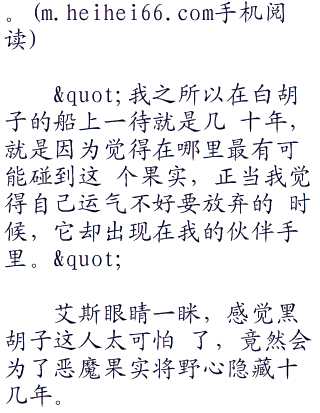 。(m.heihei66.com手机阅
读)
&quot;我之所以在白胡
子的船上一待就是几 十年，
就是因为觉得在哪里最有可
能碰到这 个果实，正当我觉
得自己运气不好要放弃的 时
候，它却出现在我的伙伴手
里。&quot;
艾斯眼睛一眯，感觉黑
胡子这人太可怕 了，竟然会
为了恶魔果实将野心隐藏十
几年。